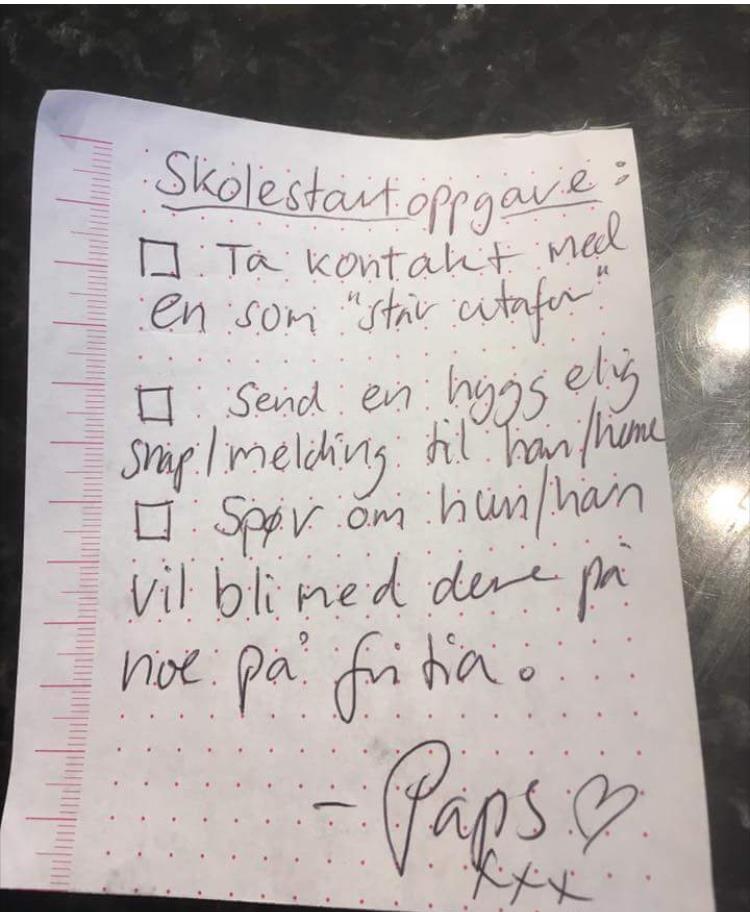 Skolestartoppgave:
☐ Ta kontakt med
en som "står utafor"
☐ Send en hyggelig
snap/melding til han/henne
☐ Spør om hun/han
vil bli med dere på
noe på fritia.
- Paps ♡
xxx